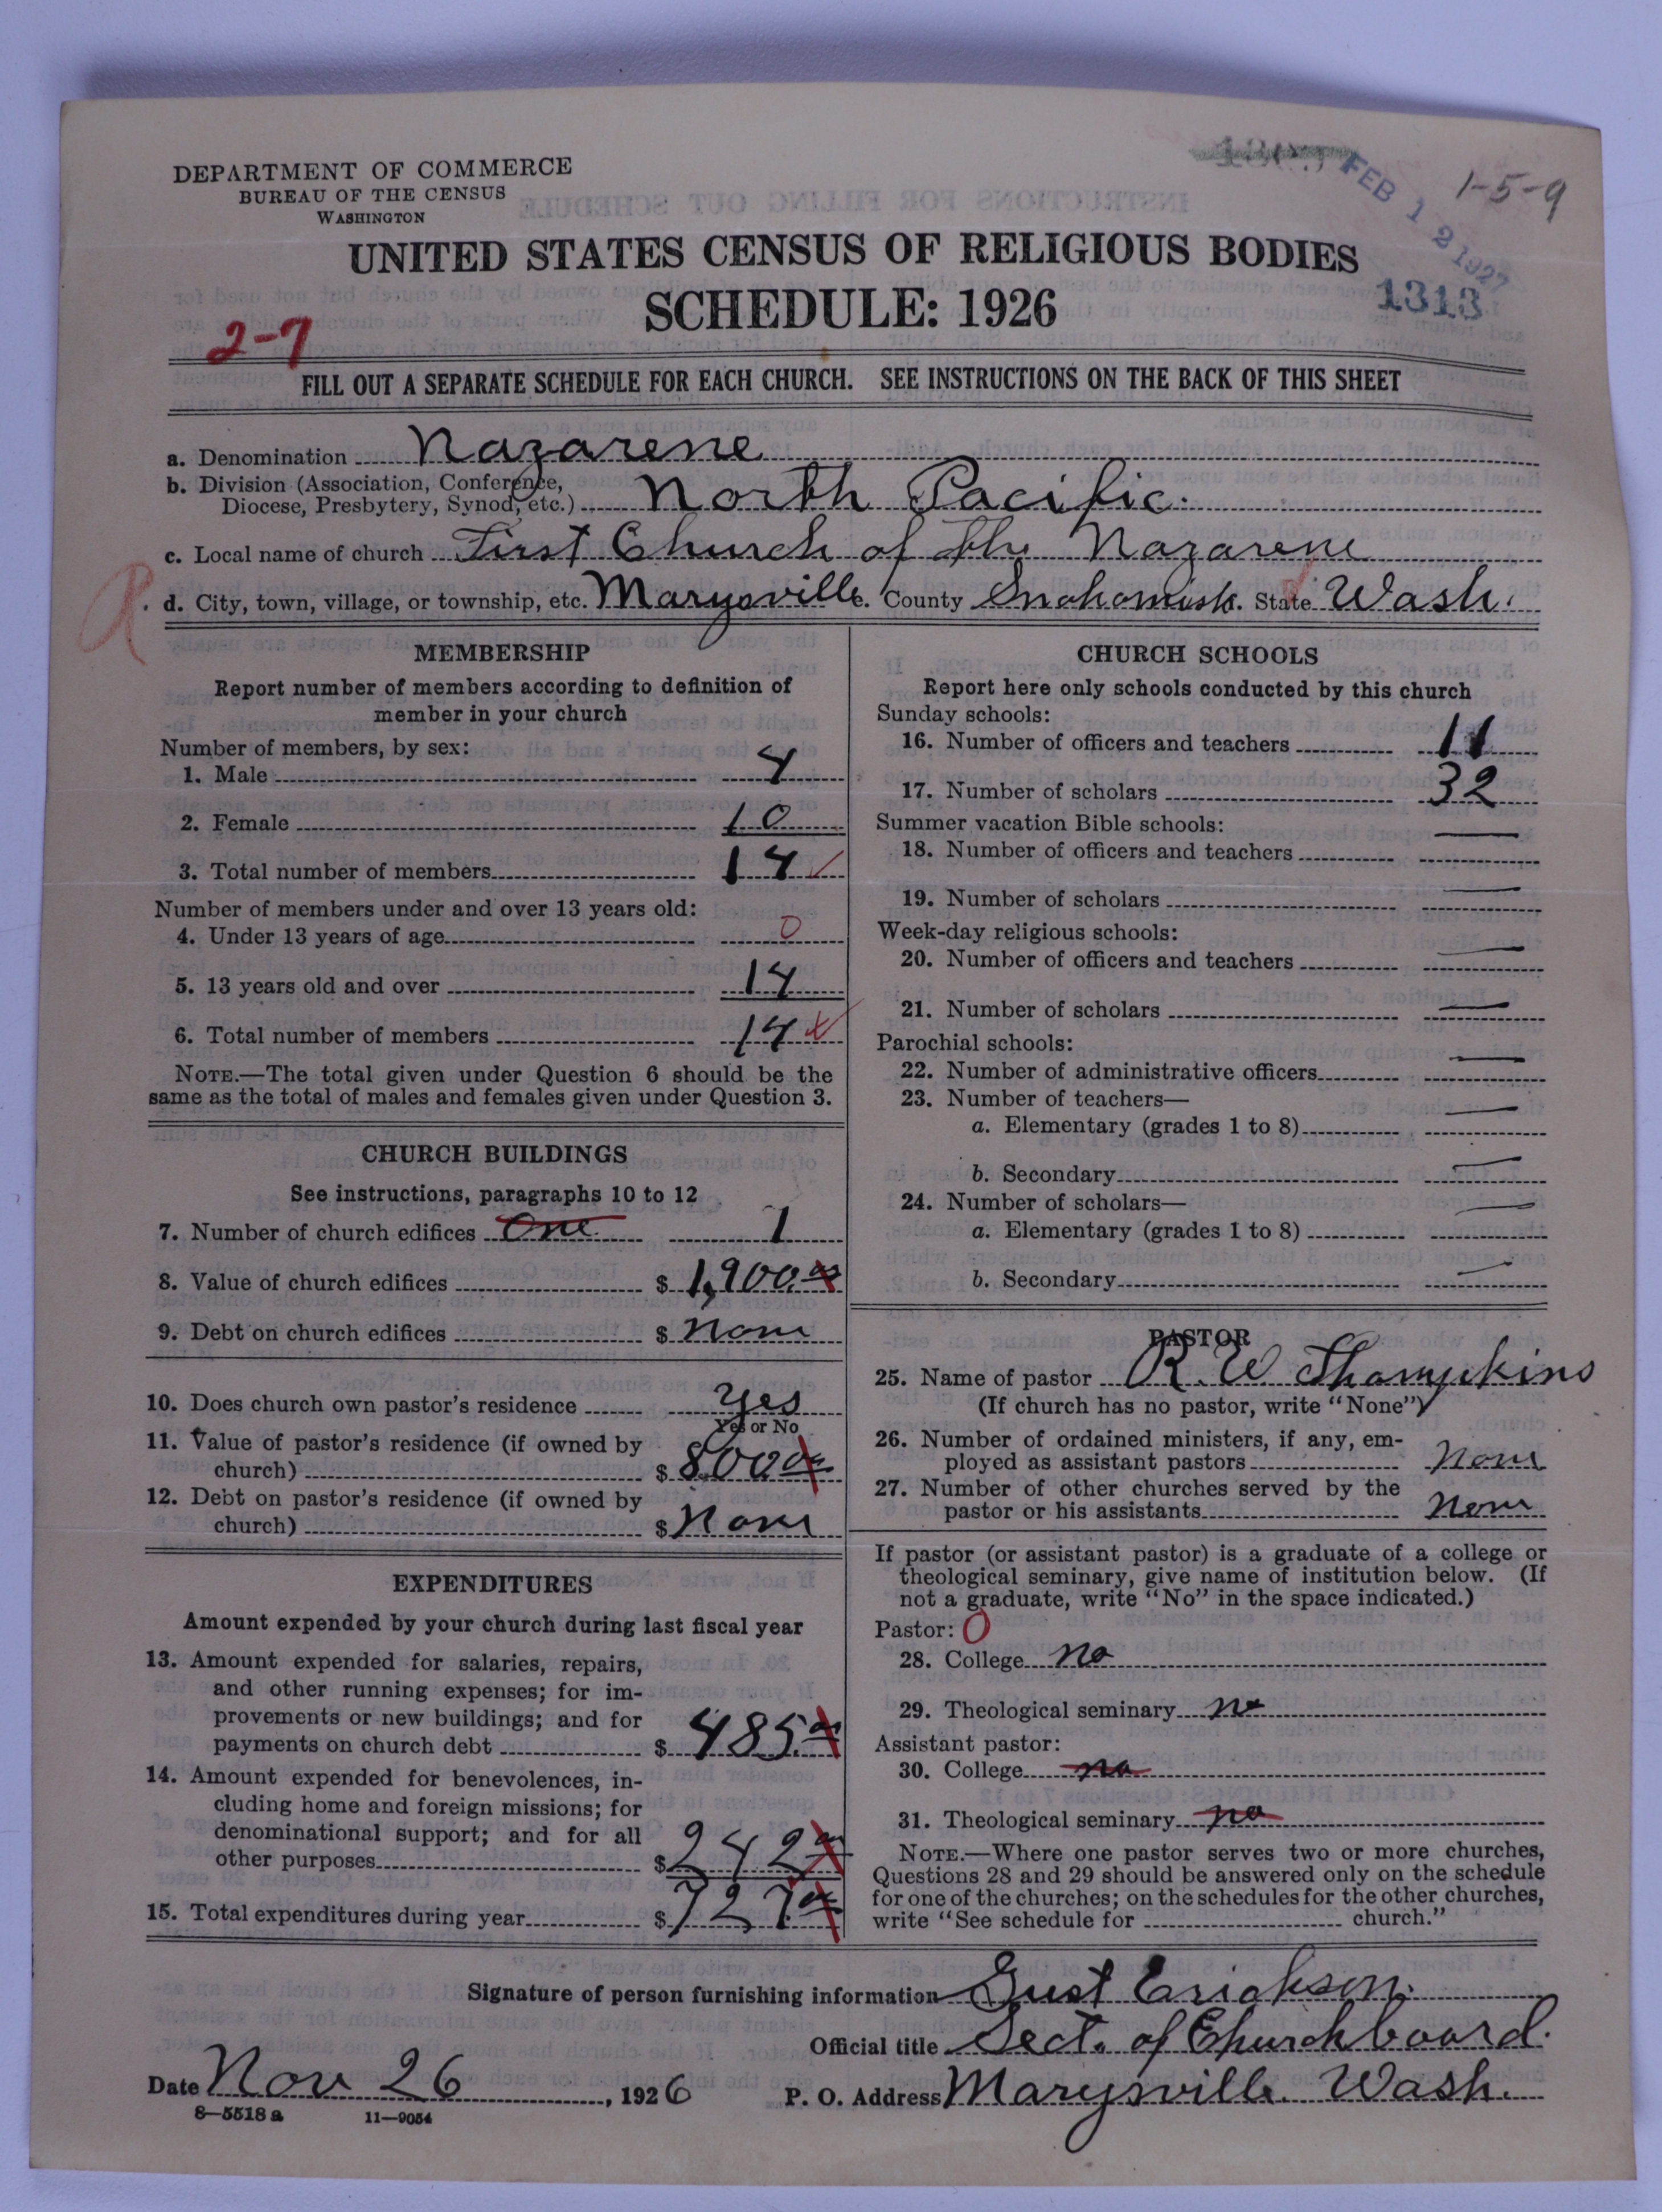 DEPARTMENT OF COMMERCE
BUREAU OF THE CENSUS
WASHINGTON
FEB 12 1927
1-5-9
UNITED STATES CENSUS OF RELIGIOUS BODIES
SCHEDULE: 1926
1313
2-7
FILL OUT A SEPARATE SCHEDULE FOR EACH CHURCH. SEE INSTRUCTIONS ON THE BACK OF THIS SHEET
a. Denomination Nazarene
b. Division (Association, Conference,
Diocese, Presbytery, Synod, etc.) North Pacific.
c. Local name of church First Church of the Nazarene
d. City, town, village, or township, etc. Marysville. County Snohomish. State Wash.
MEMBERSHIP
Report number of members according to definition of
member in your church
Number of members, by sex:
1. Male 4
2. Female 10
3. Total number of members 14
Number of members under and over 13 years old:
4. Under 13 years of age 0
5. 13 years old and over 14
6. Total number of members 14
NOTE.—The total given under Question 6 should be the
same as the total of males and females given under Question 3.
CHURCH BUILDINGS
See instructions, paragraphs 10 to 12
7. Number of church edifices One 1
8. Value of church edifices $ 1,900.00
9. Debt on church edifices $ None
10. Does church own pastor's residence Yes
Yes or No
11. Value of pastor's residence (if owned by
church) $ 800.00
12. Debt on pastor's residence (if owned by
church) $ None
EXPENDITURES
Amount expended by your church during last fiscal year
13. Amount expended for salaries, repairs,
and other running expenses; for im-
provements or new buildings; and for
payments on church debt $ 485.00
14. Amount expended for benevolences, in-
cluding home and foreign missions; for
denominational support; and for all
other purposes $ 242.00
15. Total expenditures during year $ 727.00
CHURCH SCHOOLS
Report here only schools conducted by this church
Sunday schools:
16. Number of officers and teachers 11
17. Number of scholars 32
Summer vacation Bible schools:
18. Number of officers and teachers —
19. Number of scholars —
Week-day religious schools:
20. Number of officers and teachers —
21. Number of scholars —
Parochial schools:
22. Number of administrative officers —
23. Number of teachers—
a. Elementary (grades 1 to 8) —
b. Secondary —
24. Number of scholars—
a. Elementary (grades 1 to 8) —
b. Secondary —
PASTOR
25. Name of pastor R. W.
(If church has no pastor, write "None")
26. Number of ordained ministers, if any, em-
ployed as assistant pastors None
27. Number of other churches served by the
pastor or his assistants None
If pastor (or assistant pastor) is a graduate of a college or
theological seminary, give name of institution below. (If
not a graduate, write "No" in the space indicated.)
Pastor: 0
28. College no
29. Theological seminary no
Assistant pastor:
30. College no
31. Theological seminary no
NOTE.—Where one pastor serves two or more churches,
Questions 28 and 29 should be answered only on the schedule
for one of the churches; on the schedules for the other churches,
write "See schedule for church."
Signature of person furnishing information Gust Erickson.
Official title Sect. of Church board.
Date Nov 26, 1926 P. O. Address Marysville. Wash.
8—5518 a 11—9054